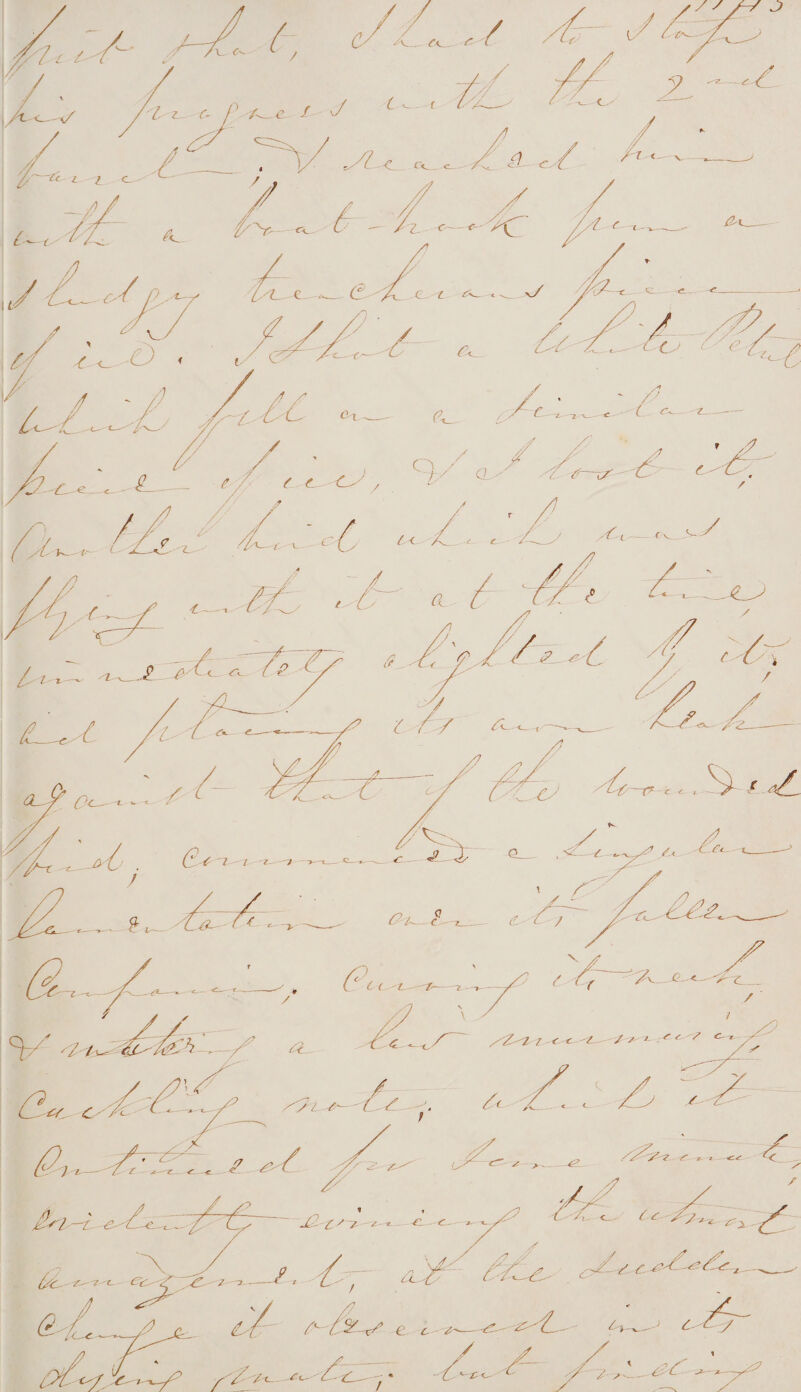 first shot, I had to stop
his progress with the 2nd
barrel; & reached him
with a boat-hook from a
sludgy treacherous piece
of ice. I shot a White Petrel
which fell on a similar
piece of ice, & I lost it;
Another bird which was
flying with it at the time,
immediately alighted by it;
and placing its own beak
against that of the wounded
bird; commenced a singular
lamentation over its fallen
Companion; Curving its neck,
& uttering a low murmuring,
Cackling note; which it
Continued for some minutes,
evidently evincing the utmost
amazement, at the sudden
Change it observed in its
dying mate; but finding